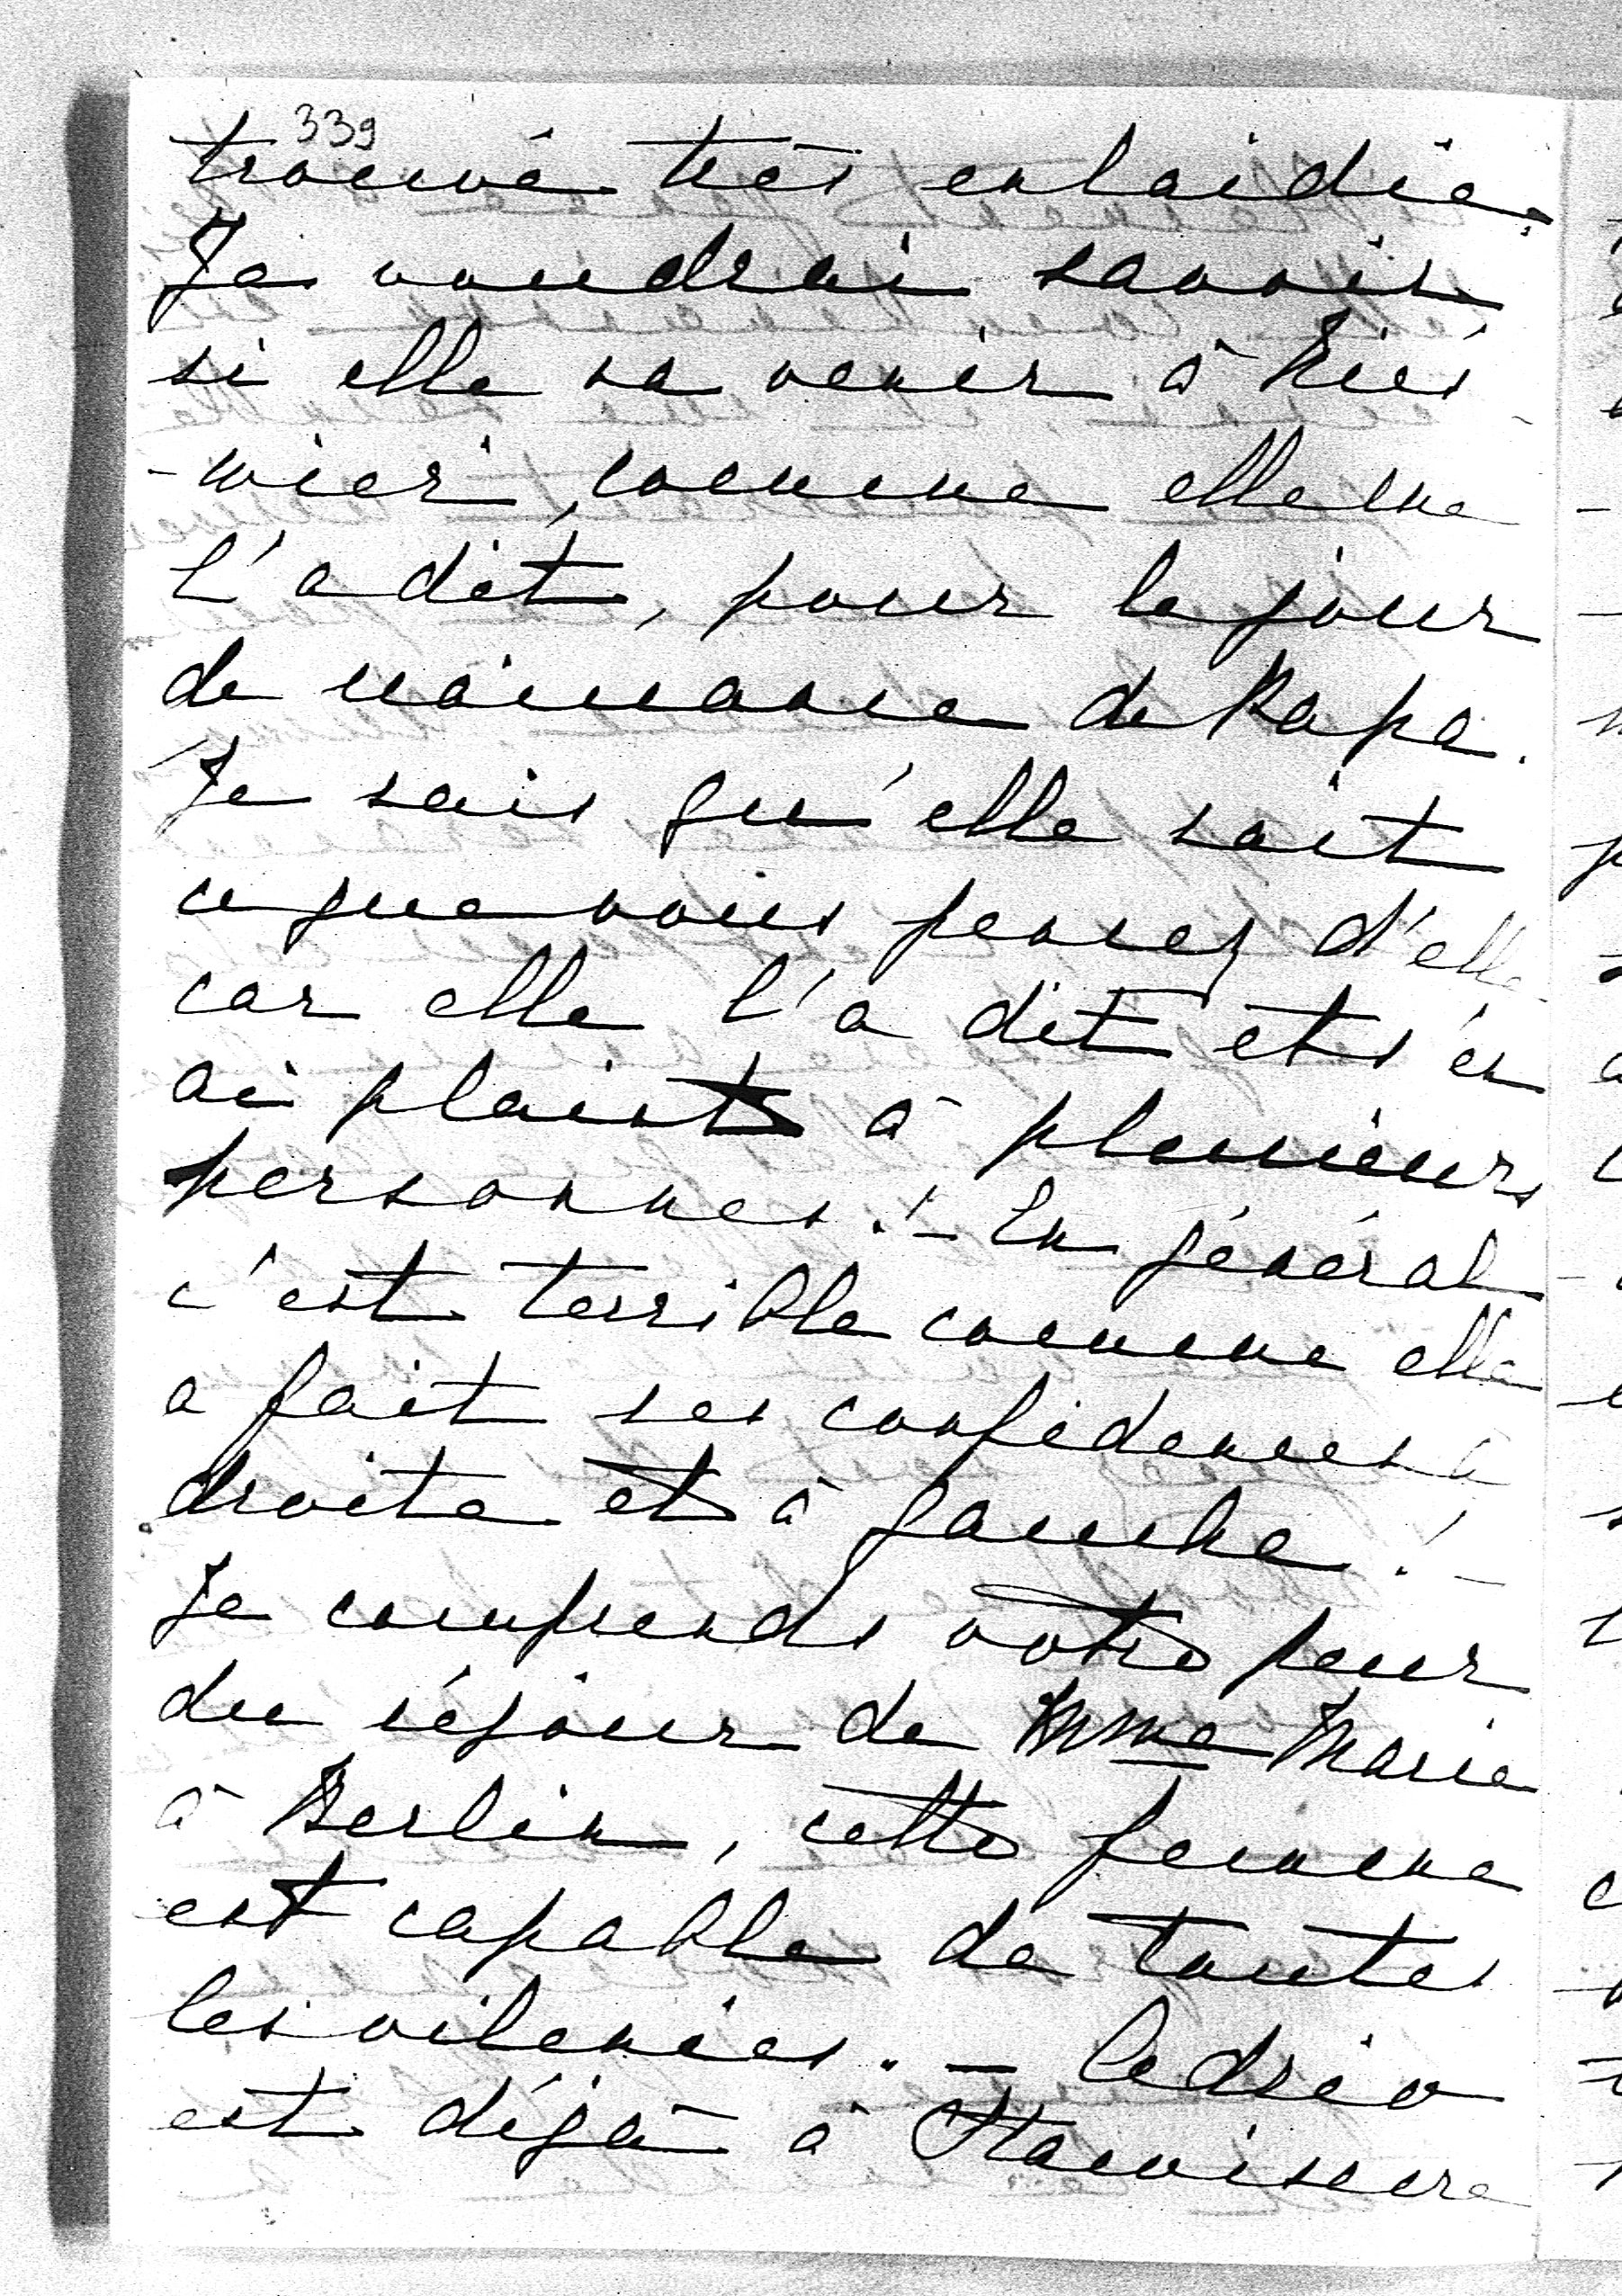 339
trouvé très enlaidie.
Je voudrai savoir
si elle va venir à Nies
-wież, comme elle me
l'a dit, pour le jour
de naissance de Papa.
Je sais qu'elle sait
ce que vous pensez d'elle
car elle l'a dit et s'en
ai plaint à plusieurs
personnes! – En général
c'est terrible comme elle
a fait ses confidences à
droite et à gauche! –
Je comprends votre peur
du séjour de Mme Marie
à Berlin, cette femme
est capable de toutes
les vilenies. –
est déjà à